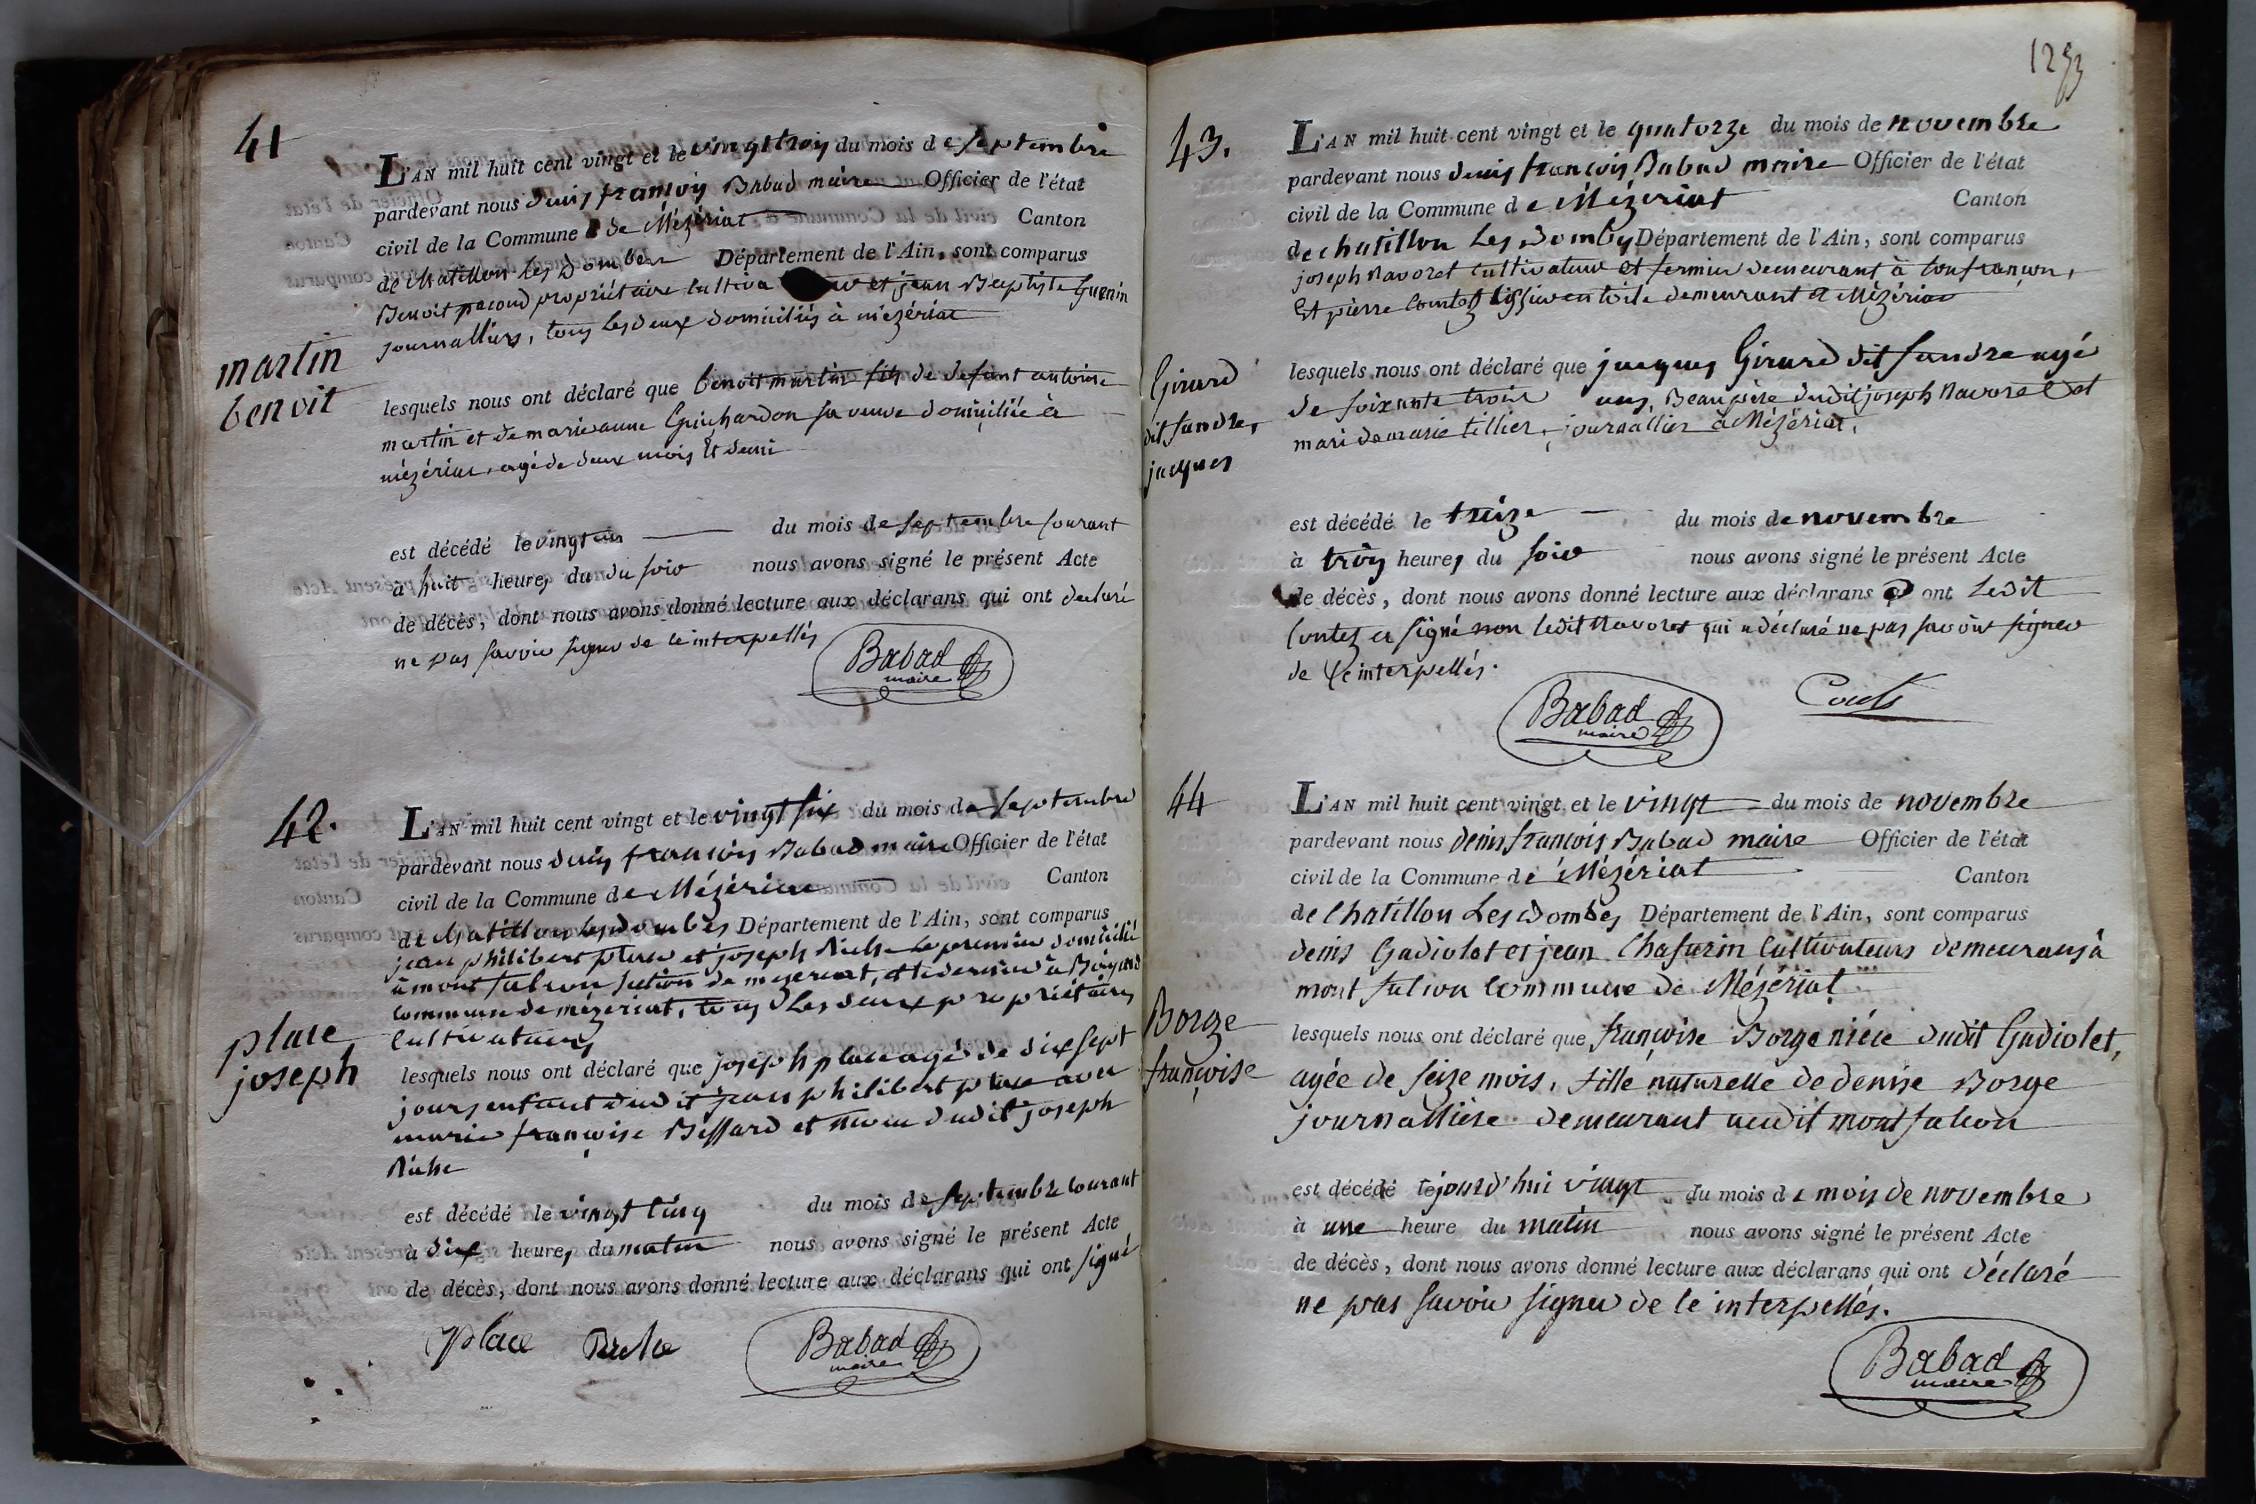 41
L'AN mil huit cent vingt et le vingt trois du mois de Septembre
pardevant nous denis françois Babad maire Officier de l'état
civil de la Commune de Mézériat Canton
de Chatillon les Dombes Département de l'Ain, sont comparus
Benoit pacoud propriétaire cultiva et jean Baptiste Guenin
journalliers, tous les deux domiciliés à mézériat
martin
benoit
lesquels nous ont déclaré que benoit martin fils de defunt antoine
martin et de marie anne Guichardon sa veuve domiciliée à
mézériat, agé de deux mois et demi
est décédé le vingt un du mois de septembre courant
à huit heures du du soir nous avons signé le présent Acte
de décès, dont nous avons donné lecture aux déclarans qui ont declaré
ne pas savoir signer de ce interpellés
Babad
maire
42.
L'AN mil huit cent vingt et le vingt six du mois de septembre
pardevant nous denis françois Babad maire Officier de l'état
civil de la Commune de Mézériat Canton
de Chatillon les Dombes Département de l'Ain, sont comparus
jean philibert place et joseph Riche le premier domicilié
à mont falcon section de mezeriat, et le dernier à
commune de mézériat, tous les deux propriétaires
cultivateurs
place
joseph
lesquels nous ont déclaré que joseph place agé de dix sept
jours enfant dudit jean philibert place avec
marie françoise Bessard et neveu dudit joseph
Riche
est décédé le vingt cinq du mois de septembre courant
à dix heures du matin nous avons signé le présent Acte
de décès, dont nous avons donné lecture aux déclarans qui ont signé
place Riche Babad
maire
1253
43.
L'AN mil huit cent vingt et le quatorze du mois de novembre
pardevant nous denis françois Babad maire Officier de l'état
civil de la Commune de Mézériat Canton
de chatillon Les Dombes Département de l'Ain, sont comparus
joseph Navoret cultivateur et fermier demeurant à Confrançon,
et pierre Contet tissier en toile demeurant à Mézériat
Girard
dit fandre,
jacques
lesquels nous ont déclaré que jacques Girard dit fandre agé
de soixante trois ans, Beaupère dudit joseph Navoret et
mari de marie tillier, journallier à Mézériat.
est décédé le treize du mois de novembre
à trois heures du soir nous avons signé le présent Acte
de décès, dont nous avons donné lecture aux déclarans ont Ledit
Contet a signé non ledit Navoret qui a déclaré ne pas savoir signer
de ce interpellés.
Babad
maire
44
L'AN mil huit cent vingt et le vingt du mois de novembre
pardevant nous denis françois Babad maire Officier de l'état
civil de la Commune de Mézériat Canton
de Chatillon Les Dombes Département de l'Ain, sont comparus
denis Gadiolet et jean Chafurin Cultivateurs demeurans à
mont falcon Commune de Mézériat
Borge
françoise
lesquels nous ont déclaré que françoise Borge niéce dudit Gadiolet,
agée de seize mois, fille naturelle de denise Borge
journallière demeurant audit mont falcon
est décédé cejourd'hui vingt du mois de mois de novembre
à une heure du matin nous avons signé le présent Acte
de décès, dont nous avons donné lecture aux déclarans qui ont déclaré
ne pas savoir signer de ce interpellés.
Babad
maire